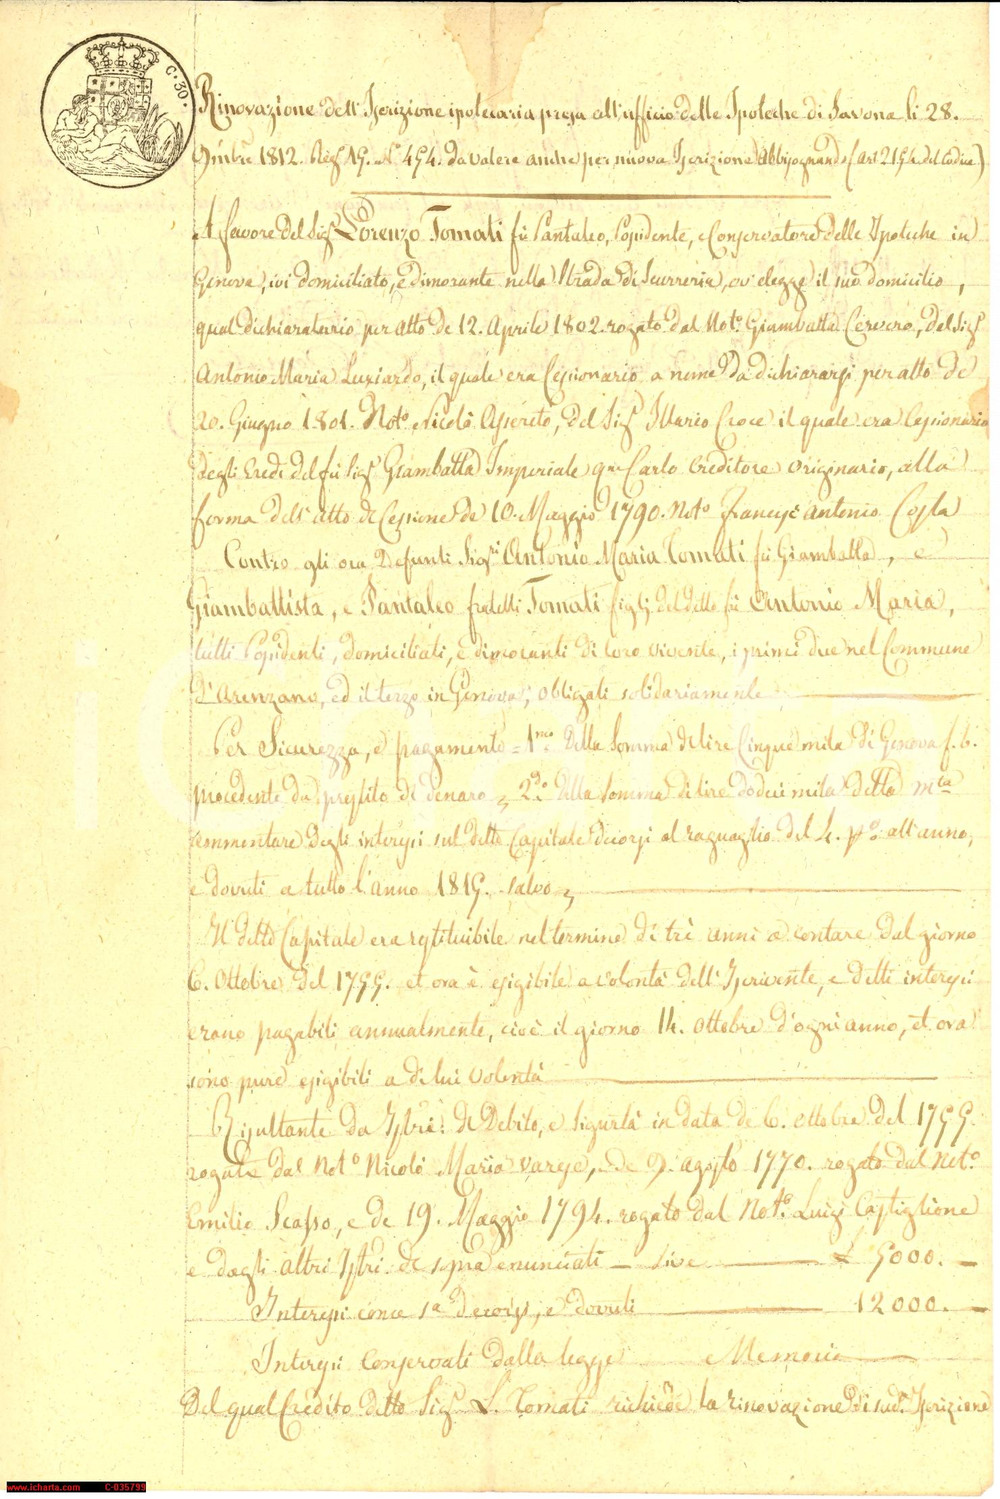 C. 30.
Rinovazione dell'Iscrizione ipotecaria presa all'ufficio delle Ipoteche di Savona li 28.
9mbre 1812. Reg. 19. No. 454. da valere anche per nuova Iscrizione Abbisognando (art. 2154. del Codice)
A favore del Sigr. Lorenzo Tomati fù Pantaleo, Possidente, e Conservatore delle Ipoteche in
Genova, ivi domiciliato, e dimorante nella Strada di Scurreria, ov'elegge il suo domicilio,
qual dichiaratario per atto de 12. Aprile 1802. rogato dal Noto. Giambatta. Cervero, del Sigr.
Antonio Maria Luxiardo, il quale era Cessionario a nome da dichiararsi per atto de
20. Giugno 1801. Noto. Nicolò Assereto, del Sigr. Illario Croce il quale era Cessionario
degli Eredi del fù Sigr. Giambatta Imperiale qm. Carlo Creditore originario, alla
forma dell'atto di Cessione de 10. Maggio 1790. Noto. Francesc'Antonio Costa
Contro gli ora Defunti Sigri. Antonio Maria Tomati fù Giambatta, e
Giambattista, e Pantaleo fratelli Tomati figlj del detto fù Antonio Maria,
tutti Possidenti, domiciliati, e dimoranti di loro vivente, i primi due nel Commune
d'Arenzano, ed il terzo in Genova, obligati solidariamente
Per Sicurezza, e pagamento = 1mo. Della Somma di lire Cinque mila di Genova f. b.
procedente da prestito di denaro, 2do. Della Somma di lire dodeci mila detta mta.
ammontare degli interessi sul detto Capitale decorsi al raguaglio del 4. p%. all'anno,
e dovuti a tutto l'anno 1819. salvo
Il detto Capitale era restituibile nel termine di tre anni a contare dal giorno
6. Ottobre del 1759. et ora è esigibile a volontà dell'Iscrivente, e detti interessi
erano pagabili annualmente, cioè il giorno 14. Ottobre d'ogni anno, et ora
sono pure esigibili a di lui volontà
Risultante da Istri. di Debito, e sigurtà in data de 6. ottobre del 1759.
rogato dal Noto. Nicolò Maria Varese, de 9. agosto 1770. rogato dal Noto.
Emilio Scasso, e de 19. Maggio 1794. rogato dal Noto. Luigi Castiglione
e dagli altri Istri. di sopra enunciati — Lire £ 5000.
Interessi come sa. decorsi, e dovuti 12000.
Interessi conservati dalla legge Memoria
Del qual Credito detto Sigr. L. Tomati richiede la rinovazione di sudta. Iscrizione
www.icharta.com C-035799